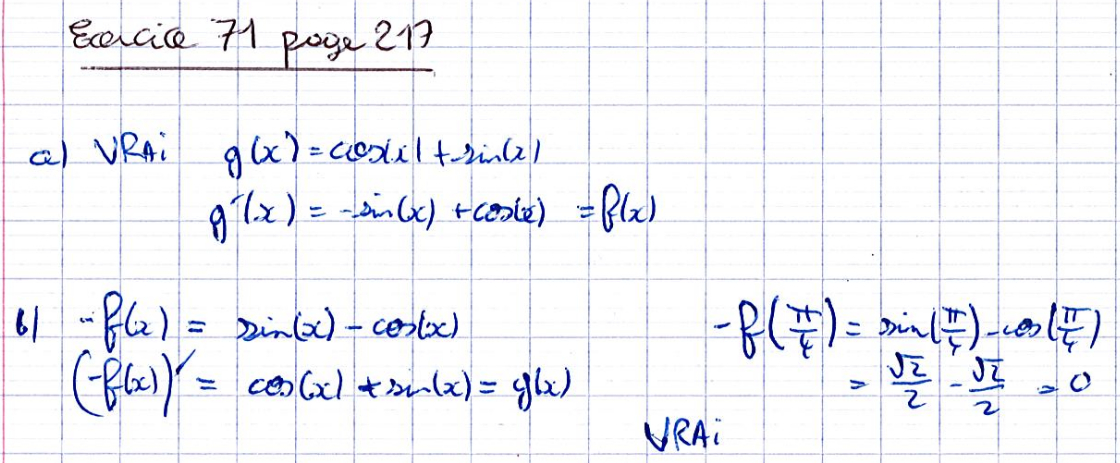 Exercice 71 page 217
a) VRAi g(x) = cos(x) + sin(x)
g'(x) = -sin(x) + cos(x) = f(x)
b) -f(x) = sin(x) - cos(x)
(-f(x))' = cos(x) + sin(x) = g(x)
-f(π/4) = sin(π/4) - cos(π/4)
= √2/2 - √2/2 = 0
VRAi